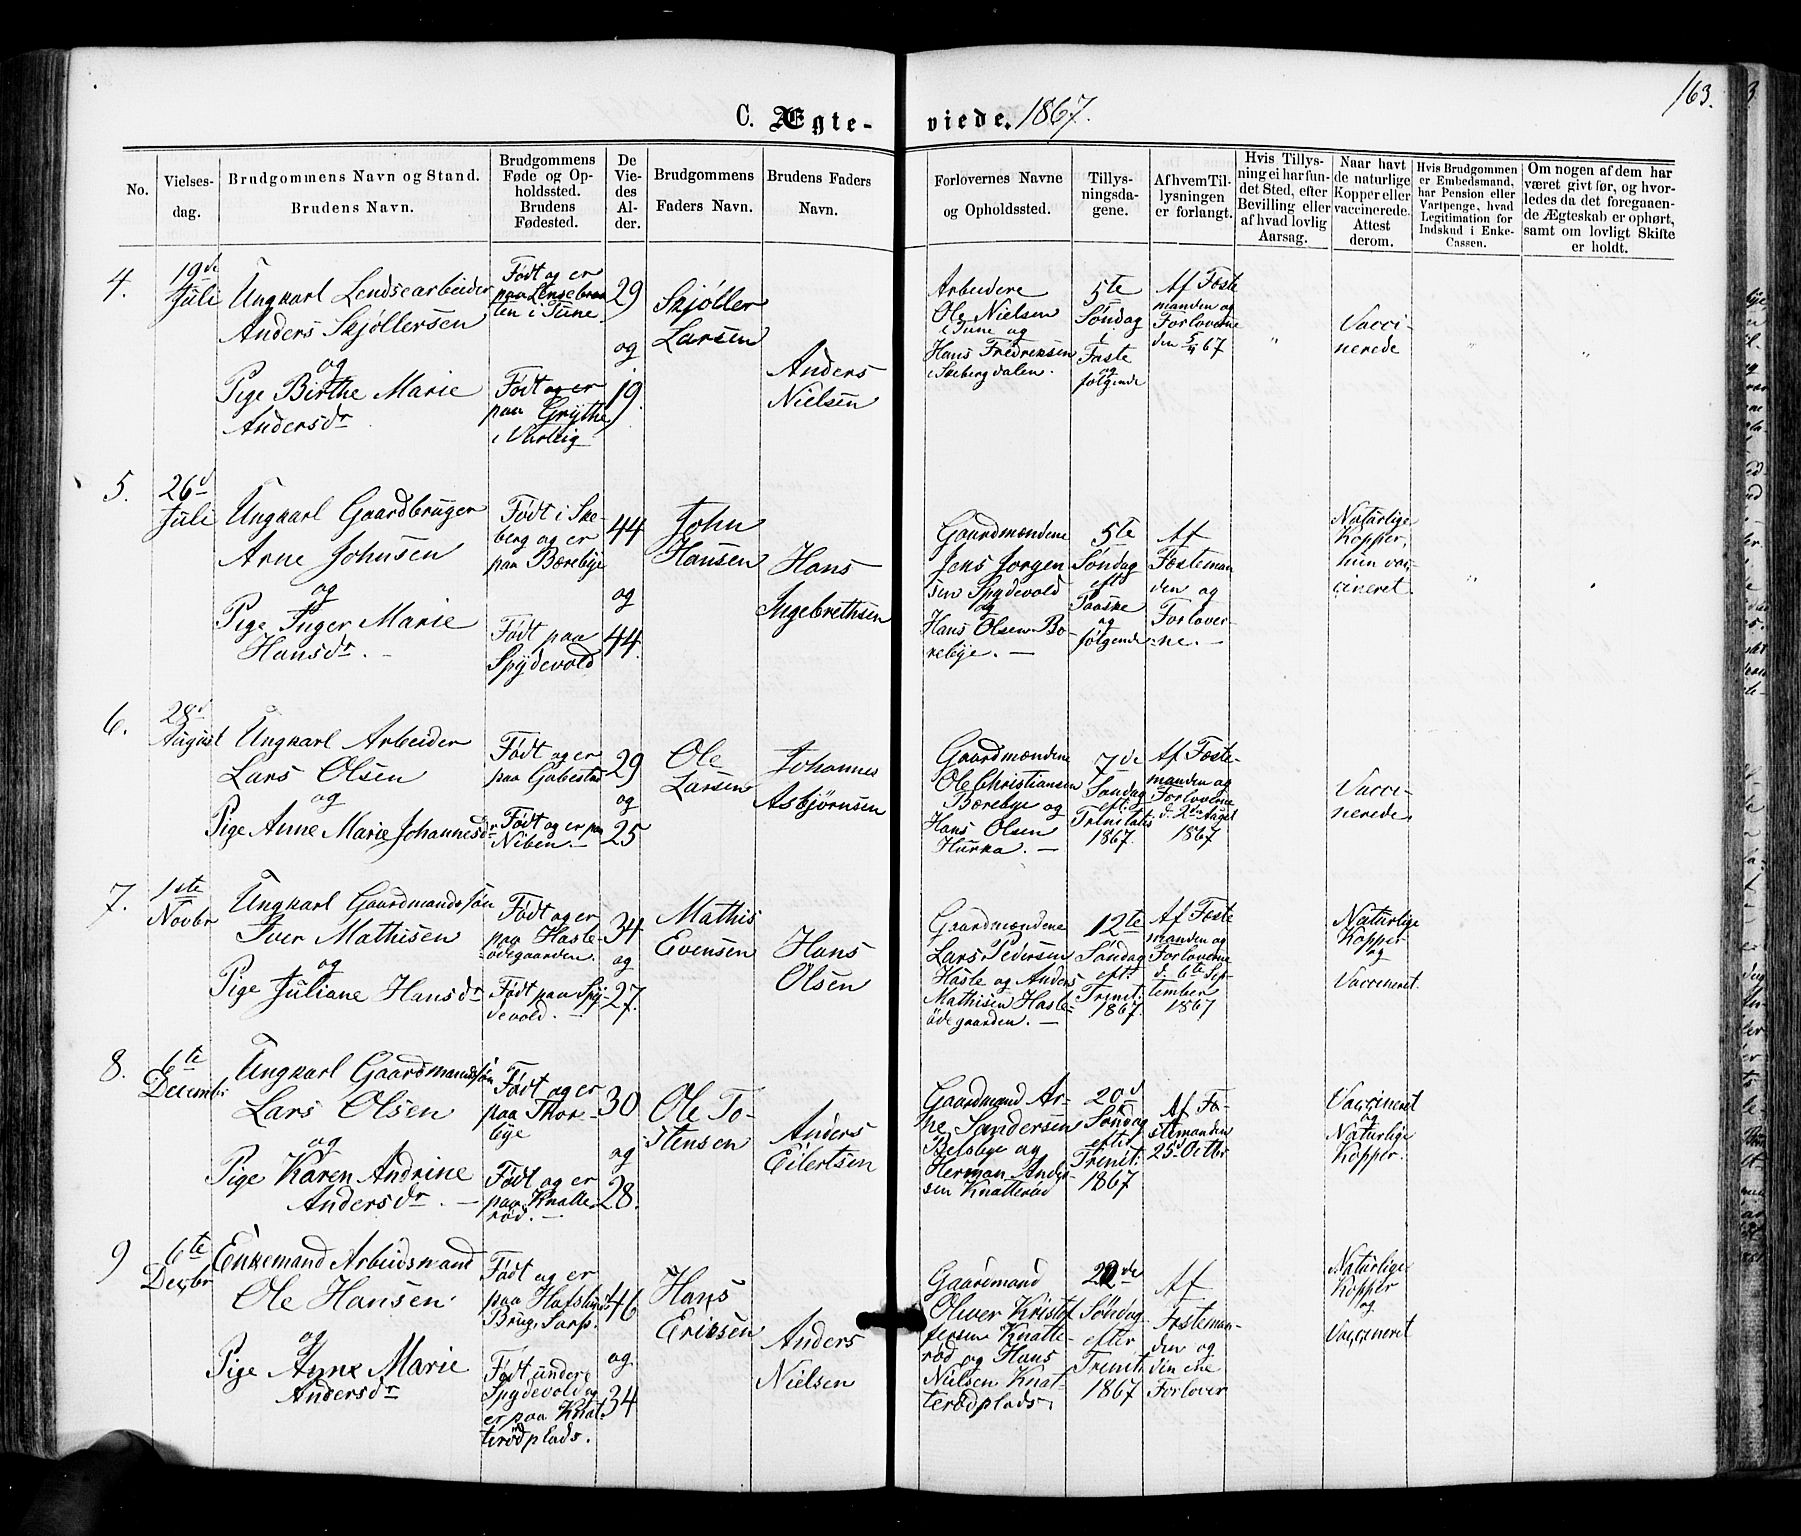 163.
C. Ægte-viede. 1867.
No.
Vielses-
dag.
Brudgommens Navn og Stand.
Brudens Navn.
Brudgommens
Føde og Op-
holdssted.
Brudens
Fødested.
De
Vie-
des
Al-
der.
Brudgommens
Faders Navn.
Brudens Faders
Navn.
Forlovernes Navne
og Opholdssted.
Tillys-
ningsda-
gene.
Af hvem Til-
lysningen
er forlangt.
Hvis Tillys-
ning ei har fun-
det Sted, efter
Bevilling eller
af hvad lovlig
Aarsag.
Naar havt
de naturlige
Kopper eller
vaccinerede.
Attest
derom.
Hvis Brudgommen
er Embedsmand,
har Pension eller
Vartpenge, hvad
Legitimation for
Indskud i Enke-
Cassen.
Om nogen af dem har
været givt før, og hvor-
ledes da det foregaaen-
de Ægteskab er ophørt,
samt om lovligt Skifte
er holdt.
4.
19de
Juli
Ungkarl Lendsearbeider
Anders Skjøllersen
og
Pige Birthe Marie
Andersdr
Født og er
paa Lensebraa
ten i Tune.
Født og er
paa Grythe
i Varteig
29
og
19.
Skjøller
Larsen
Anders
Nielsen
Arbeidere
Ole Nielsen
i Tune og
Hans Fredriksen
i Skebergdalen.
5te
Søndag
i
Faste
og
følgende
Af Fæste
manden og
Forloverne
den 5/4 67
"
Vacci-
nerede
"
"
5.
26d
Juli
Ungkarl Gaardbruger
Arne Johnsen
og
Pige Inger Marie
Hansdr. -
Født i Ske-
berg og er
paa Bærebye
Født paa
Spydevold
44
og
44.
John
Hansen
Hans
Ingebrethsen
Gaardmændene
Jens Jorgen
sen Spydevold
og
Hans Olsen Bæ-
rebye. -
5te
Søndag
eft
Paaske
og
følgende
Af
Fæsteman
den og
Forlover-
ne. -
Naturlige
Kopper,
hun vac-
cineret
"
"
6.
28d
August
Ungkarl Arbeider
Lars Olsen
og
Pige Anne Marie Johannesdr
Født og er
paa Gabestad
Født og er paa
Niben. -
29
og
25
Ole
Larsen
Johannes
Asbjørnsen
Gaardmændene
Ole Christiansen
Bærebye og
Hans Olsen
Hurka. -
7de
Søndag
eft:
Trinitatis
1867.
Af Fæste-
manden og
Forloverne
d. 2den Augst
1867
Vacci-
nerede
7.
1ste
Novbr
Ungkarl Gaardmandssøn
Iver Mathisen
og
Pige Juliane Hansdr
Født og er
paa Hasle-
ødegaarden.
Født paa Spy-
devold. -
34
og
27.
Mathis
Evensen
Hans
Olsen
Gaardmændene
Lars Pedersen
Hasle og Anders
Mathisen Hasle-
ødegaarden. -
12te
Søndag
eft:
Trinit:
1867.
Af Fæste
manden og
Forloverne
d. 6te Sep-
tember
1867
Naturlige
Kopper
og
Vaccineret.
8.
6te
Decembr
Ungkarl Gaardmandssøn
Lars Olsen
og
Pige Karen Andrine
Andersdr. -
Født og er
paa Thor-
bye
Født og er
paa Knatte
rød. -
30
og
28.
Ole To-
stensen
Anders
Eilertsen
Gaardmand Ar-
ne Sandersen
Belsbye og
Herman Ander-
sen Knatterød
20d
Søndag
efter
Trinit:
1867
Af Fæ-
stemanden
25d Octbr
Vaccineret
og
Naturlige
Kopper.
9
6te
Decbr
Enkemand Arbeidsmand
Ole Hansen
og
Pige Anne Marie
Andersdr
Født og er
paa Hafslunds
Brug, Sarps.
Født under
Spydevold og
er paa Knat-
terødplads.
46
og
34
Hans
Ericsen
Anders
Nielsen
Gaardmand
Oliver Kristof
fersen Knatte-
rød og Hans
Nielsen Knat-
terødplads.
22de
Søndag
efter
Trinit:
1867
Af
Fæsteman-
den og
den ene
Forlover
Naturlige
Kopper
og
Vaccineret